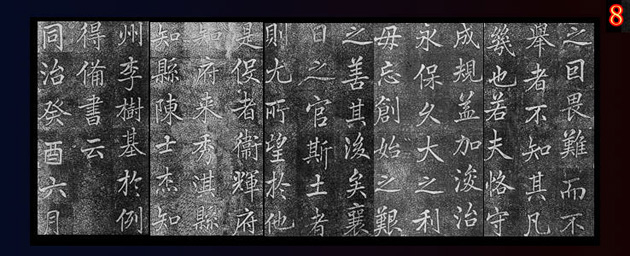 8
之囙畏難而不
舉者不知其凡
幾也若夫恪守
成規益加浚治
永保久大之利
毋忘創始之艱
之善其後矣襄
日之官斯土者
則尤所望於他
是役者衛輝府
知府來秀淇縣
知縣陳士杰知
州李樹基於例
得備書云
同治癸酉六月